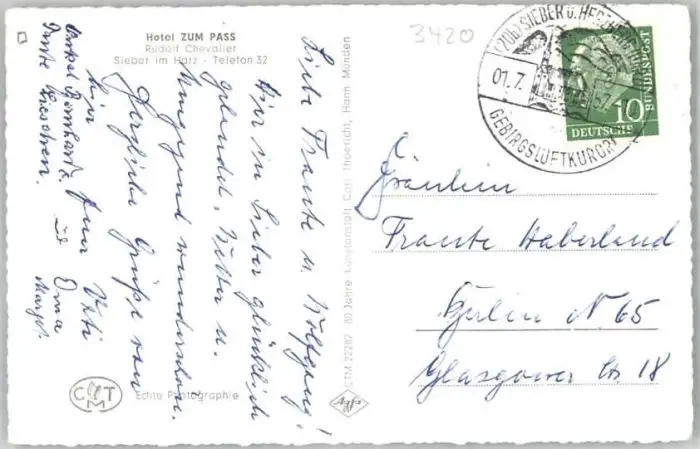 Hotel ZUM PASS
Rudolf Chevalier
Sieber im Harz · Telefon 32
3420
Liebe Traute u. Wolfgang!
Hier in Sieber glücklich
gelandet, Wetter u.
Umgegend wunderschön.
Herzliche Grüße von
hier
Eure Vati
und Oma
Margot.
Onkel
Tante Lieschen.
CTM
Echte Photographie
CTM 22287 80 Jahre Kunstanstalt Carl Thoericht, Hann. Münden
(20b) SIEBER Ü. HERZBERG
01.7. 57
GEBIRGSLUFTKURORT
10
DEUTSCHE
BUNDESPOST
Fräulein
Traute Haberland
Berlin N 65
Glasgower Str 18